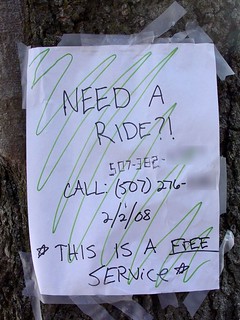 NEED A
RIDE?!
507-382-
CALL: (507) 276-
2/2/08
☆ THIS IS A FREE
SERVICE ☆